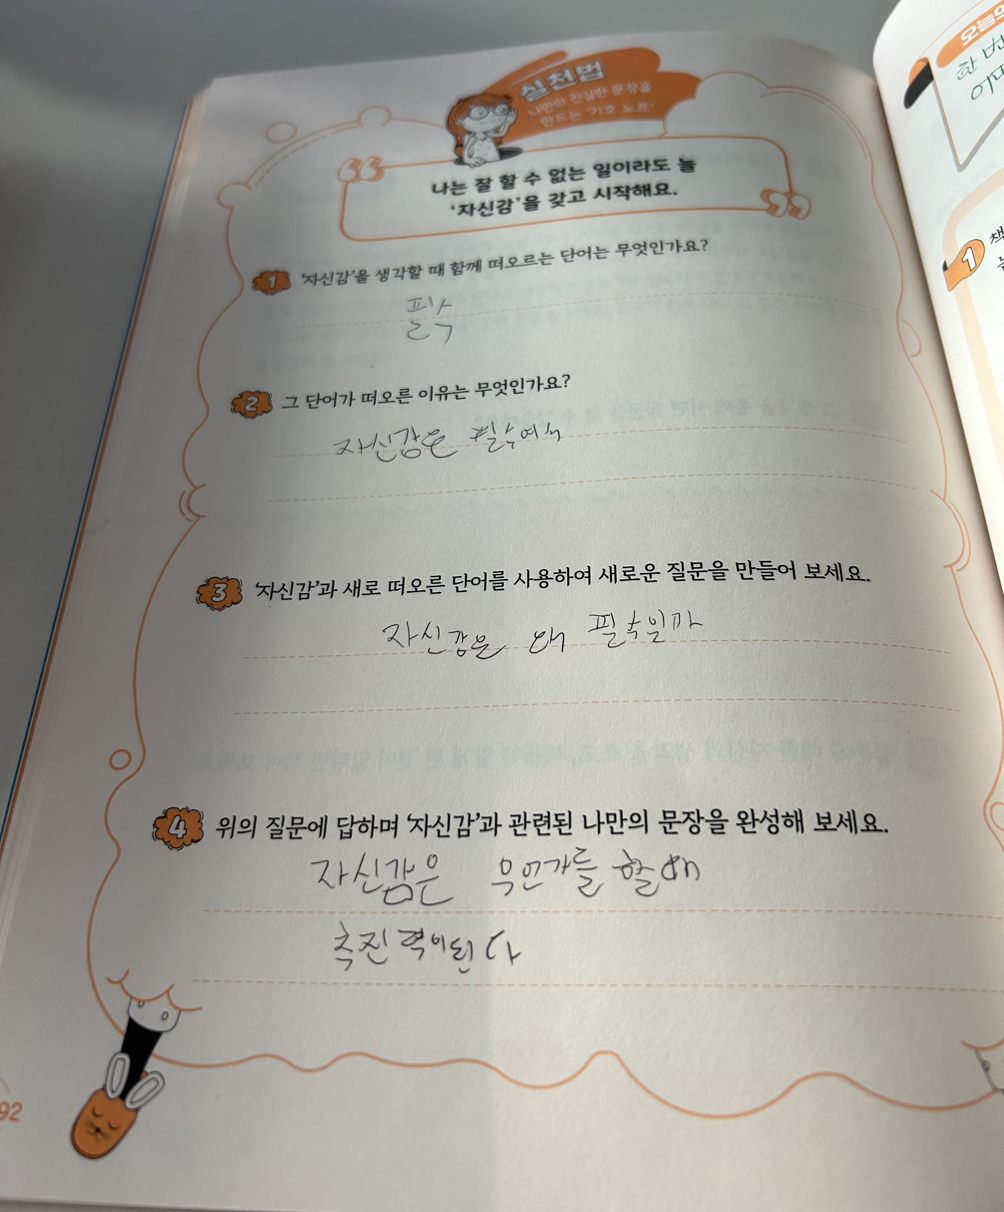 실천법
나만의 진실한 문장을
만드는 '기호 노트'
나는 잘 할 수 없는 일이라도 늘
'자신감'을 갖고 시작해요.
1 '자신감'을 생각할 때 함께 떠오르는 단어는 무엇인가요?
필수
2 그 단어가 떠오른 이유는 무엇인가요?
자신감은 필수여서
3 '자신감'과 새로 떠오른 단어를 사용하여 새로운 질문을 만들어 보세요.
자신감은 왜 필수일까
4 위의 질문에 답하며 '자신감'과 관련된 나만의 문장을 완성해 보세요.
자신감은 무언가를 할때
추진력이된다
92
오늘의
한 번
1 책